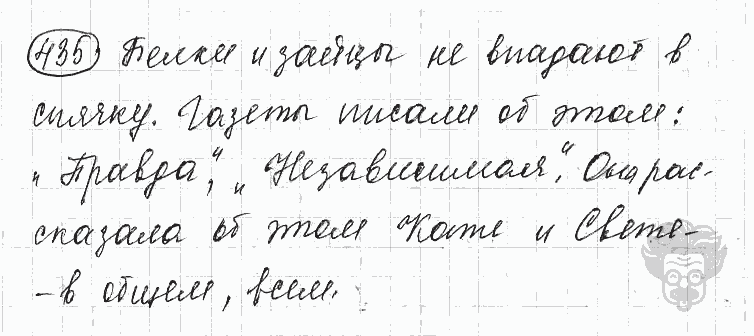 435) Белки и зайцы не впадают в
спячку. Газеты писали об этом:
„Правда“, „Независимая“. Она рас-
сказала об этом Кате и Свете-
-в общем, всем.